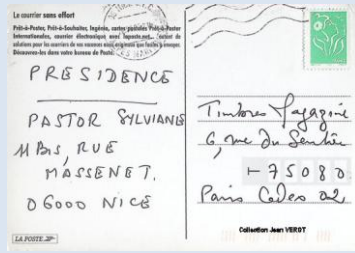 Le courrier sans effort
Prêt-à-Poster, Prêt-à-Souhaiter, Ingénio, cartes postales Prêt-à-Poster
Internationales, courrier électronique avec laposte.net...
solutions pour les courriers de vos vacances aussi
Découvrez-les dans votre bureau de Poste.
PRESIDENCE
PASTOR SYLVIANE
11 Bis, RUE
MASSENET.
06000 NICE
LA POSTE
Timbres Magazine
6, rue du Sentier
75080
Paris Cedex 02
Collection Jean VEROT